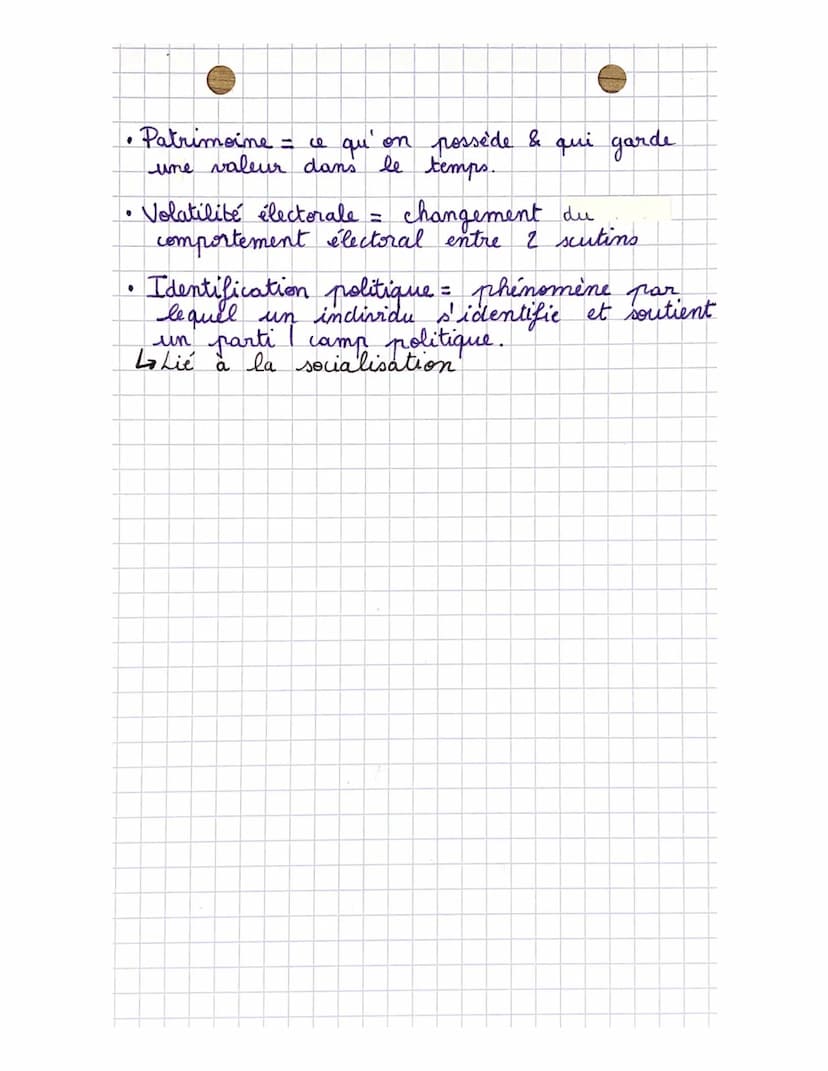 • Patrimoine = ce qu'on possède & qui garde
une valeur dans le temps.
• Volatilité électorale = changement du
comportement électoral entre 2 scutins
• Identification politique = phénomène par
lequel un individu s'identifie et soutient
un parti / camp politique.
↳ Lié à la socialisation